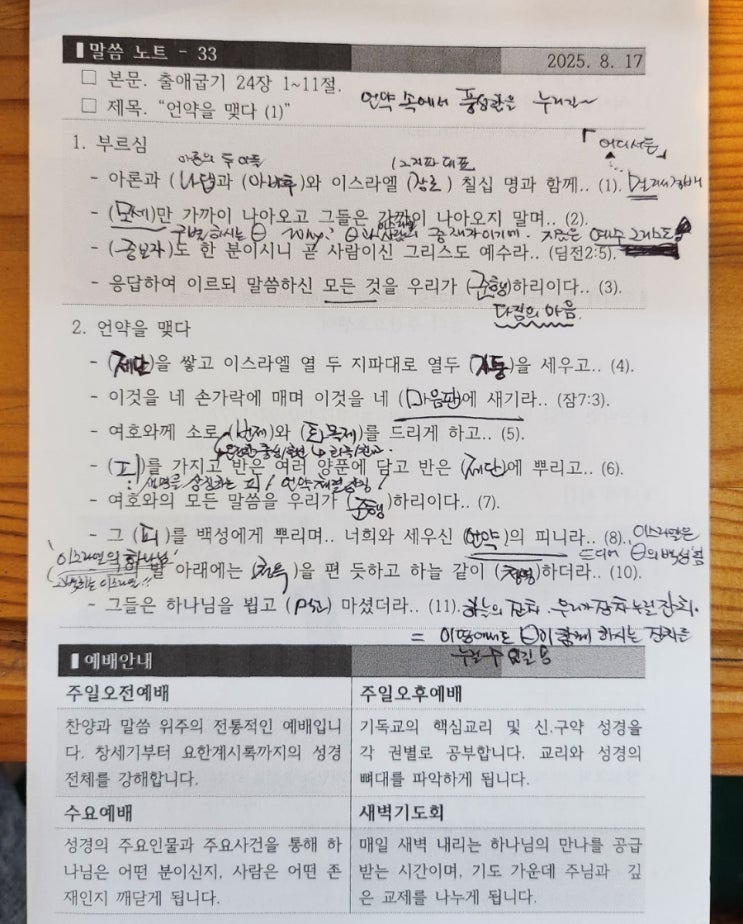 말씀 노트 - 33
2025. 8. 17
□ 본문. 출애굽기 24장 1~11절.
□ 제목. "언약을 맺다 (1)"
언약 속에서 풍성함을 누리라~
1. 부르심
「어디서든」
아론의 두 아들
- 아론과 (나답과 (아비후)와 이스라엘 (장로) 칠십 명과 함께.. (1).
- (모세)만 가까이 나아오고 그들은 가까이 나아오지 말며.. (2).
구별하시는 Why?
- (중보자)도 한 분이시니 곧 사람이신 그리스도 예수라.. (딤전2:5).
- 응답하여 이르되 말씀하신 모든 것을 우리가 (준행)하리이다.. (3).
다짐의 마음.
2. 언약을 맺다
- (제단)을 쌓고 이스라엘 열 두 지파대로 열두 (기둥)을 세우고.. (4).
- 이것을 네 손가락에 매며 이것을 네 (마음판)에 새기라.. (잠7:3).
- 여호와께 소로 (번제)와 (화목제)를 드리게 하고.. (5).
- (피)를 가지고 반은 여러 양푼에 담고 반은 (제단)에 뿌리고.. (6).
: 생명을 상징하는 피! 언약체결상징!
- 여호와의 모든 말씀을 우리가 (준행)하리이다.. (7).
- 그 (피)를 백성에게 뿌리며.. 너희와 세우신 (언약)의 피니라.. (8).
'이스라엘의 하나님'
아래에는 (청옥)을 편 듯하고 하늘 같이 (청명)하더라.. (10).
- 그들은 하나님을 뵙고 (먹고) 마셨더라.. (11). 하늘의 잔치. 우리가 장차 누릴 잔치.
예배안내
주일오전예배
찬양과 말씀 위주의 전통적인 예배입니
다. 창세기부터 요한계시록까지의 성경
전체를 강해합니다.
주일오후예배
기독교의 핵심교리 및 신.구약 성경을
각 권별로 공부합니다. 교리와 성경의
뼈대를 파악하게 됩니다.
수요예배
성경의 주요인물과 주요사건을 통해 하
나님은 어떤 분이신지, 사람은 어떤 존
재인지 깨닫게 됩니다.
새벽기도회
매일 새벽 내리는 하나님의 만나를 공급
받는 시간이며, 기도 가운데 주님과 깊
은 교제를 나누게 됩니다.